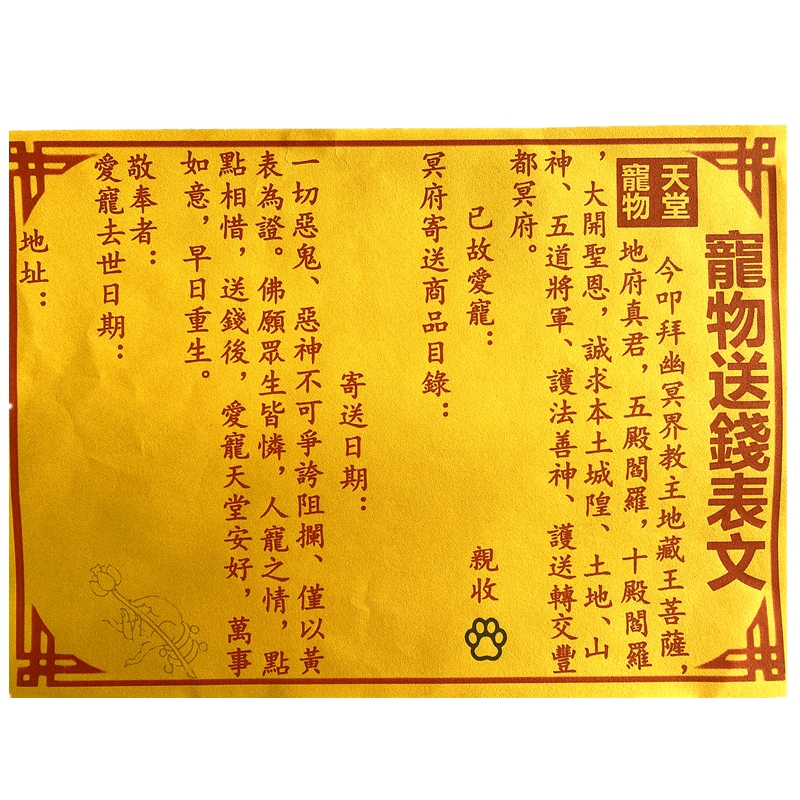 寵物送錢表文
天堂
寵物
今叩拜幽冥界教主地藏王菩薩,
地府真君,五殿閻羅,十殿閻羅
,大開聖恩,誠求本土城隍、土地、山
神、五道將軍、護法善神、護送轉交豐
都冥府。
已故愛寵: 親收
冥府寄送商品目錄:
寄送日期:
一切惡鬼、惡神不可爭誇阻攔、僅以黃
表為證。佛願眾生皆憐,人寵之情,點
點相惜,送錢後,愛寵天堂安好,萬事
如意,早日重生。
敬奉者:
愛寵去世日期:
地址: